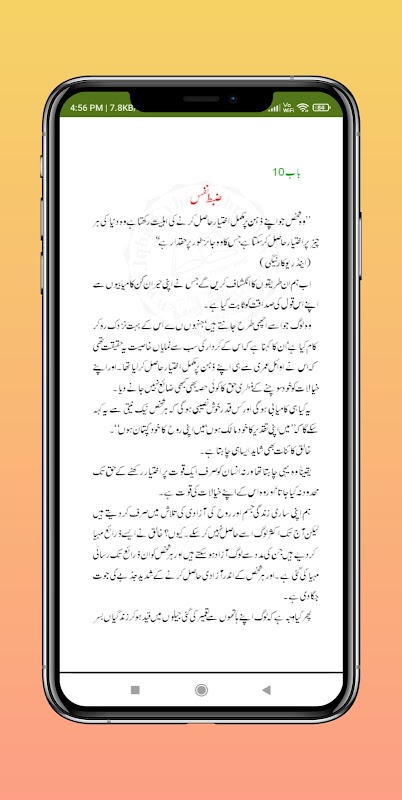 4:56 PM | 7.8KB/
Vo
WiFi
64
باب 10
ضبط نفس
”وہ شخص جو اپنے ذہن پر مکمل اختیار حاصل کرنے کی اہلیت رکھتا ہے وہ دنیا کی ہر
چیز پر اختیار حاصل کر سکتا ہے جس کا وہ جائز طور پر حقدار ہے“
(اینڈریو کارنیگی)
اب ہم ان طریقوں کا انکشاف کریں گے جس نے اپنی حیران کن کامیابیوں سے
اپنے اس قول کی صداقت کو ثابت کیا ہے۔
وہ لوگ جو اسے اچھی طرح جانتے ہیں‘ جنہوں نے اس کے بہت نزدیک رہ کر
کام کیا ہے‘ ان کا کہنا ہے کہ اس کے کردار کی سب سے نمایاں خاصیت یہ حقیقت تھی
کہ اس نے اوائل عمری سے ہی اپنے ذہن پر مکمل اختیار حاصل کر لیا تھا۔ اور اپنے
خیالات کو خود سوچنے کے فطری حق کا کوئی حصہ بھی کبھی ضائع نہیں جانے دیا۔
یہ کیا ہی کامیابی ہوگی اور کس قدر خوش نصیبی ہوگی کہ ہر شخص نیک نیتی سے یہ کہہ
سکے گا کہ ”میں اپنی تقدیر کا خود مالک ہوں میں اپنی روح کا خود کپتان ہوں“۔
خالق کائنات بھی شاید ایسا ہی چاہتا ہے۔
یقیناً وہ یہی چاہتا تھا ورنہ انسان کو صرف ایک قوت پر اختیار رکھنے کے حق تک
محدود نہ کیا جاتا‘ اور وہ اس کے اپنے خیالات کی قوت ہے۔
ہم اپنی ساری زندگی جسم اور روح کی آزادی کی تلاش میں صرف کر دیتے ہیں
لیکن آج تک اکثر لوگ اسے حاصل نہیں کر سکے۔ کیوں؟ خالق نے ایسے ذرائع مہیا
کر دیے ہیں جن کی مدد سے لوگ آزاد ہو سکتے ہیں اور ہر شخص کو ان ذرائع تک رسائی
مہیا کی گئی ہے۔ اور ہر شخص کے اندر آزادی حاصل کرنے کے شدید جذبے کی جوت
جگا دی ہے۔
پھر کیا وجہ ہے کہ لوگ اپنے ہاتھوں سے تعمیر کی گئی جیلوں میں قید ہو کر زندگیاں بسر